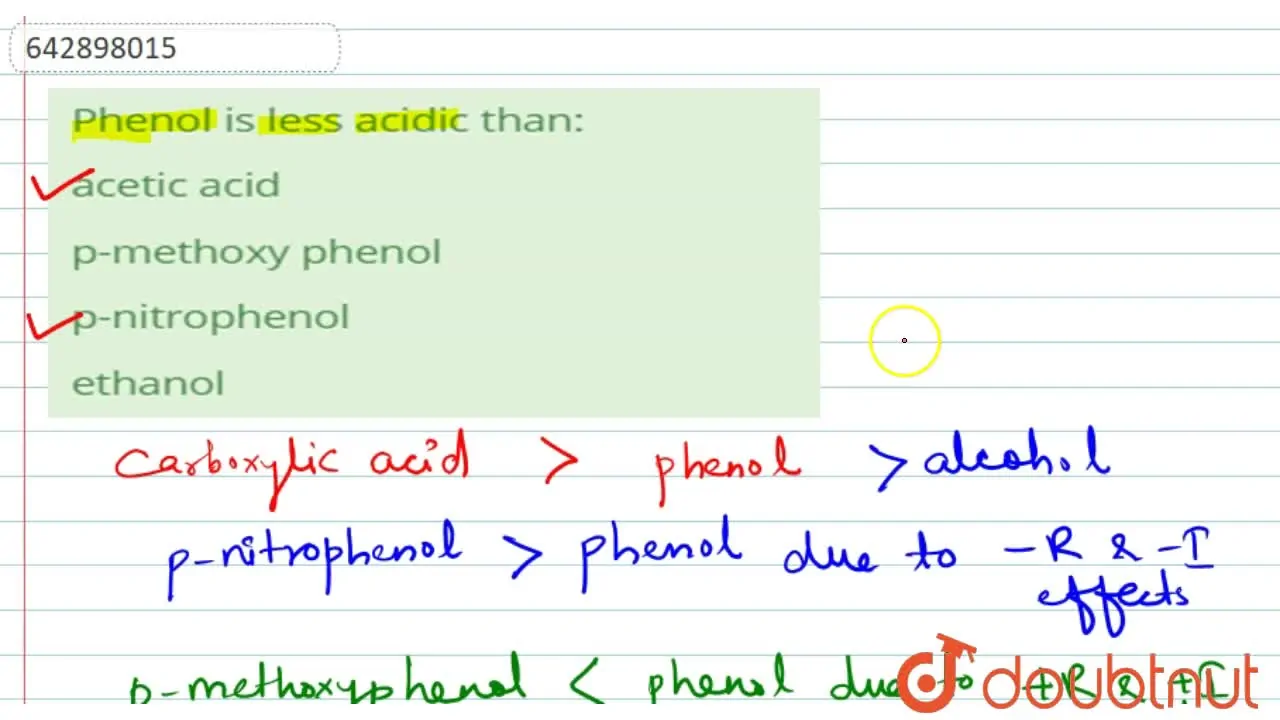 642898015
Phenol is less acidic than:
acetic acid
p-methoxy phenol
p-nitrophenol
ethanol
Carboxylic acid > phenol > alcohol
p-nitrophenol > phenol due to -R & -I
effects
p-methoxyphenol < phenol due to +R & +I
doubtnut